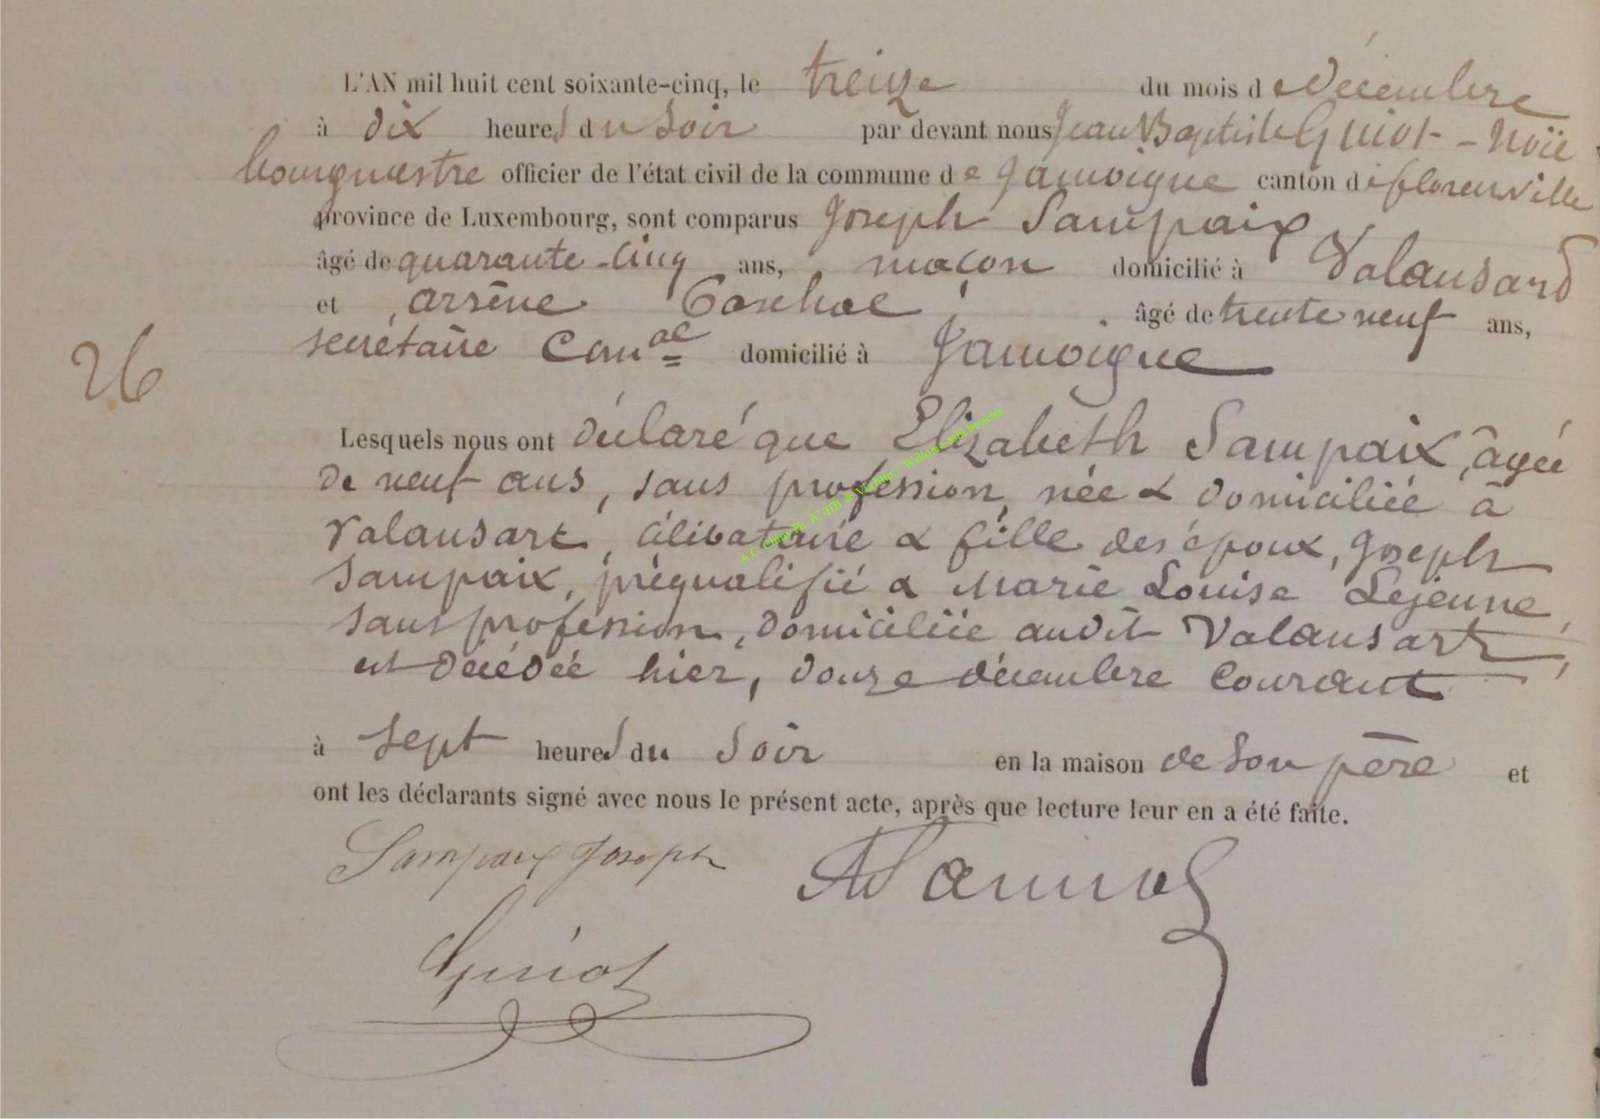 L'AN mil huit cent soixante-cinq, le treize du mois de décembre
à dix heures du soir par devant nous Jean Baptiste Guiot - Noïé
bourgmestre officier de l'état civil de la commune de Jamoigne canton de florenville
province de Luxembourg, sont comparus Joseph Sampaix,
âgé de quarante-cinq ans, maçon domicilié à Valansard
et arsène âgé de trente neuf ans,
secrétaire Comal domicilié à Jamoigne
26
Lesquels nous ont déclaré que Elizabeth Sampaix, âgée
de neuf ans, sans profession, née & domiciliée à
Valansart, célibataire & fille des époux, Joseph
Sampaix, préqualifié & Marie Louise Lejeune,
sans profession, domiciliée audit Valansart,
est décédée hier, douze décembre courant
à sept heures du soir en la maison de son père et
ont les déclarants signé avec nous le présent acte, après que lecture leur en a été faite.
Sampaix Joseph
Guiot